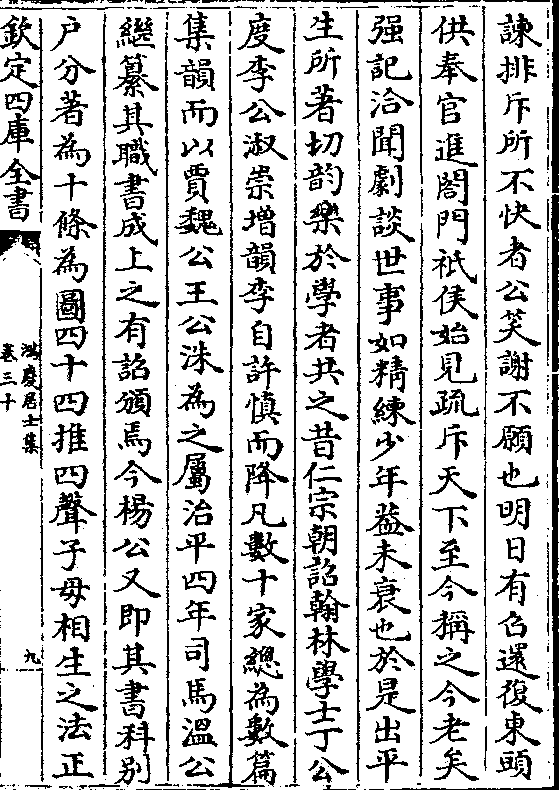 諫排斥所不快者公笑謝不願也明日有㫖還復東頭
供奉官進閤門祗侯始見疏斥天下至今稱之今老矣
强記洽聞劇談世事如精練少年益未衰也於是出平
生所著切韵樂於學者共之昔仁宗朝詔翰林學士丁公
度李公淑崇增韻學自許慎而降凡數十家總為數篇
集韻而以賈魏公王公洙為之屬治平四年司馬溫公
繼纂其職書成上之有詔頒焉今楊公又即其書科别
户分著為十條為圖四十四推四聲子母相生之法正
欽定四庫全書
鴻慶居士集
卷三十
九